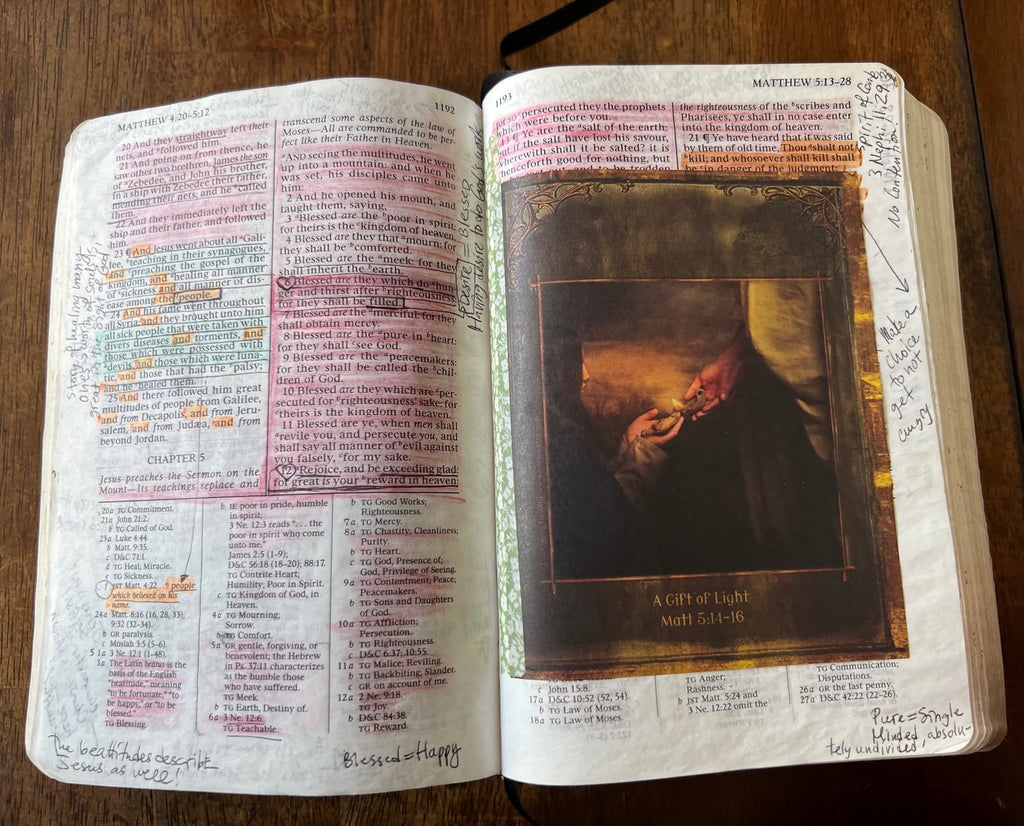 MATTHEW 4:20–5:12
1192
20 And they straightway left their
nets, and followed him.
21 And going on from thence, he
saw other two brethren, James the son
of Zebedee, and John his brother,
in a ship with Zebedee their father,
mending their nets; and he called
them.
22 And they immediately left the
ship and their father, and followed
him.
23 ¶ And Jesus went about all Gali-
lee, teaching in their synagogues,
and preaching the gospel of the
kingdom, and healing all manner
of sickness and all manner of dis-
ease among the people.
24 And his fame went throughout
all Syria: and they brought unto him
all sick people that were taken with
divers diseases and torments, and
those which were possessed with
devils, and those which were luna-
tic, and those that had the palsy;
and he healed them.
25 And there followed him great
multitudes of people from Galilee,
and from Decapolis, and from Jeru-
salem, and from Judæa, and from
beyond Jordan.
CHAPTER 5
Jesus preaches the Sermon on the
Mount—Its teachings replace and
transcend some aspects of the law of
Moses—All are commanded to be per-
fect like their Father in Heaven.
AND seeing the multitudes, he went
up into a mountain: and when he
was set, his disciples came unto
him:
2 And he opened his mouth, and
taught them, saying,
3 Blessed are the poor in spirit:
for theirs is the kingdom of heaven.
4 Blessed are they that mourn: for
they shall be comforted.
5 Blessed are the meek: for they
shall inherit the earth.
6 Blessed are they which do hun-
ger and thirst after righteousness:
for they shall be filled.
7 Blessed are the merciful: for they
shall obtain mercy.
8 Blessed are the pure in heart:
for they shall see God.
9 Blessed are the peacemakers:
for they shall be called the chil-
dren of God.
10 Blessed are they which are per-
secuted for righteousness' sake: for
theirs is the kingdom of heaven.
11 Blessed are ye, when men shall
revile you, and persecute you, and
shall say all manner of evil against
you falsely, for my sake.
12 Rejoice, and be exceeding glad:
for great is your reward in heaven:
20a TG Commitment.
21a John 21:2.
b TG Called of God.
23a Luke 4:44.
b Matt. 9:35.
c D&C 71:1.
d TG Heal; Miracle.
e TG Sickness.
f JST Matt. 4:22 . . . people
which believed on his
name.
24a Matt. 8:16 (16, 28, 33);
9:32 (32–34).
b GR paralysis.
c Mosiah 3:5 (5–6).
5 1a 3 Ne. 12:1 (1–48).
3a The Latin beatus is the
basis of the English
"beatitude," meaning
"to be fortunate," "to
be happy," or "to be
blessed."
TG Blessing.
b IE poor in pride, humble
in spirit;
3 Ne. 12:3 reads ". . . the
poor in spirit who come
unto me."
James 2:5 (1–9);
D&C 56:18 (18–20); 88:17.
TG Contrite Heart;
Humility; Poor in Spirit.
c TG Kingdom of God, in
Heaven.
4a TG Mourning;
Sorrow.
b TG Comfort.
5a GR gentle, forgiving, or
benevolent; the Hebrew
in Ps. 37:11 characterizes
as the humble those
who have suffered.
TG Meek.
b TG Earth, Destiny of.
6a 3 Ne. 12:6.
TG Teachable.
b TG Good Works;
Righteousness.
7a TG Mercy.
8a TG Chastity; Cleanliness;
Purity.
b TG Heart.
c TG God, Presence of;
God, Privilege of Seeing.
9a TG Contentment; Peace;
Peacemakers.
b TG Sons and Daughters
of God.
10a TG Affliction;
Persecution.
b TG Righteousness.
c D&C 6:37; 10:55.
11a TG Malice; Reviling.
b TG Backbiting; Slander.
c GR on account of me.
12a 2 Ne. 9:18.
TG Joy.
b D&C 84:38.
TG Reward.
The beattitudes describe
Jesus as well!
Blessed = Happy
Desire = Blessed
1193
MATTHEW 5:13–28
for so persecuted they the prophets
which were before you.
13 ¶ Ye are the salt of the earth:
but if the salt have lost his savour,
wherewith shall it be salted? it is
thenceforth good for nothing, but
to be trodden
the righteousness of the scribes and
Pharisees, ye shall in no case enter
into the kingdom of heaven.
21 ¶ Ye have heard that it was said
by them of old time, Thou shalt not
kill; and whosoever shall kill shall
be in danger of the judgment:
3 Nephi 11:29
No Contention
Make a
choice
to not
get
angry
A Gift of Light
Matt 5:14-16
c John 15:8.
17a D&C 10:52 (52, 54).
b TG Law of Moses.
18a TG Law of Moses.
TG Anger;
Rashness.
b JST Matt. 5:24 and
3 Ne. 12:22 omit the
TG Communication;
Disputations.
26a GR the last penny.
27a D&C 42:22 (22–26).
Pure = Single
Minded, absolu-
tely undivided